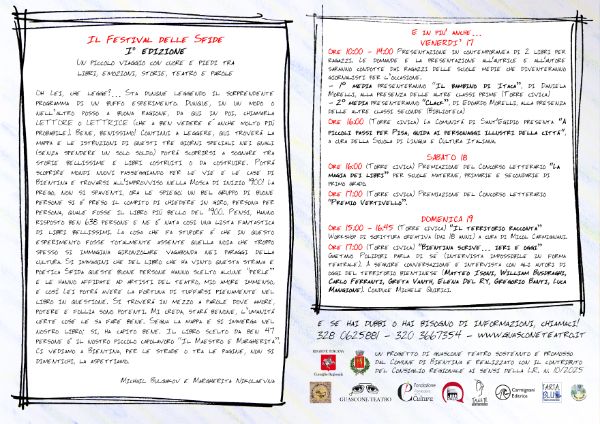 Il Festival delle Sfide
1° edizione
Un piccolo viaggio con cuore e piedi tra
libri, emozioni, storie, teatro e parole
Oh Lei, che legge?... Sta dunque leggendo il sorprendente
programma di un buffo esperimento. Dunque, in un modo o
nell'altro posso a buona ragione, da qui in poi, chiamarla
LETTORE o LETTRICE (che a ben vedere è anche molto più
probabile). Bene, benissimo! Continui a leggere, qui troverà la
mappa e le istruzioni di questi tre giorni speciali nei quali
(senza spendere un solo soldo) potrà scoprirsi a sognare tra
storie bellissime e libri costruiti o da costruire. Potrà
scoprire mondi nuovi passeggiando per le vie e le case di
Bientina e trovarsi all'improvviso nella Mosca di inizio '900! La
prego, non si spaventi, ora le spiego. Un bel gruppo di buone
persone si è preso il compito di chiedere in giro, persona per
persona, quale fosse il libro più bello del '900. Pensi, hanno
risposto ben 638 persone e ne è nata così una lista fantastica
di libri bellissimi. La cosa che fa stupore è che in questo
esperimento fosse totalmente assente quella noia che troppo
spesso si immagina gironzolare vagabonda nei paraggi della
cultura. Si immagini che del libro che ha vinto questa strana e
poetica Sfida queste buone persone hanno scelto alcune "perle"
e le hanno affidate ad artisti del teatro. Mio amore immenso,
e così Lei potrà avere la fortuna di tuffarsi pienamente nel
libro in questione. Si troverà in mezzo a parole dove amore,
potere e follia sono potenti. Mi creda, starà benone, l'umanità
certe cose le sa fare bene. Segua la mappa e si immerga nel
nostro libro; sì, ha capito bene. Il libro scelto da ben 47
persone è il nostro piccolo capolavoro "Il Maestro e Margherita".
Ci vediamo a Bientina, per le strade o tra le pagine, non si
dimentichi, la aspettiamo.
Michail Bulgakov e Margherita Nikolaevna
E in più anche...
VENERDI' 17
Ore 10:00 - 19:00 Presentazione in contemporanea di 2 libri per
ragazzi. Le domande e la presentazione all'autrice e all'autore
saranno condotte dai ragazzi delle scuole medie che diventeranno
giornalisti per l'occasione.
- 1° media presenteranno "Il bambino di Itaca", di Daniela
Morelli, alla presenza delle altre classi prime (Torre civica)
- 2° media presenteranno "Clack", di Edoardo Morelli, alla presenza
delle altre classi seconde (Biblioteca)
Ore 16:00 (Torre civica) La comunità di Sant'Egidio presenta "A
piccoli passi per Pisa, guida ai personaggi illustri della città",
a cura della Scuola di Lingua e Cultura Italiana.
SABATO 18
Ore 16:00 (Torre civica) Premiazione del Concorso letterario "La
magia dei libri" per scuole materne, primarie e secondarie di
primo grado.
Ore 17:00 (Torre civica) Premiazione del Concorso letterario
"Premio Vertivello".
DOMENICA 19
Ore 15.00 - 16.45 (Torre civica) "Il territorio racconta"
Workshop di scrittura creativa (dai 18 anni) a cura di Micol Carmignani.
Ore 17:00 (Torre civica) "Bientina scrive... ieri e oggi"
Gaetano Polidori parla di sé (intervista impossibile in forma
teatrale). A seguire conversazione e intervista con gli autori di
oggi del territorio bientinese (Matteo Isoni, William Busdraghi,
Carlo Ferranti, Greta Vanth, Elena Del Ry, Gregorio Banti, Luca
Mangione). Conduce Michele Quirici.
E se hai dubbi o hai bisogno di informazioni, chiamaci!
328 0625881 - 320 3667354 - www.guasconeteatro.it
REGIONE TOSCANA
Consiglio Regionale
un progetto di Guascone Teatro sostenuto e promosso
dal Comune di Bientina e realizzato con il contributo
del Consiglio Regionale ai sensi della L.R. n. 10/2025
GUASCONE TEATRO
Fondazione
Cultura
Carmignani
Editrice
TARTA
BLU